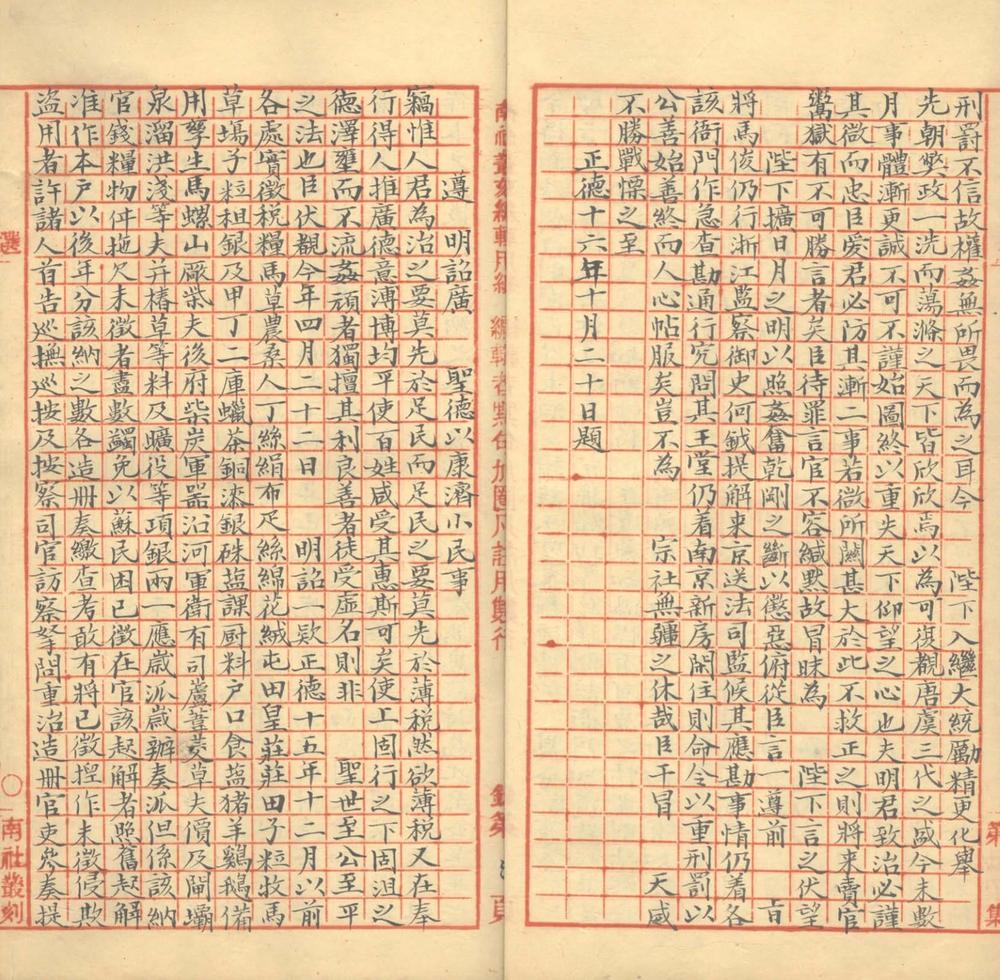 刑罰不信故權姦無所畏而為之耳今　　陛下入繼大統勵精更化舉
先朝獘政一洗而蕩滌之天下皆欣欣焉以為可復觀唐虞三代之盛今未數
月事體漸更誠不可不謹始圖終以重失天下仰望之心也夫明君致治必謹
其微而忠臣愛君必防其漸二事若微所關甚大於此不救正之則將來賣官
鬻獄有不可勝言者矣臣待罪言官不容緘默故冒昧為　　陛下言之伏望
陛下擴日月之明以照姦奮乾剛之斷以懲惡俯從臣言一遵前　　旨
將馬俊仍行浙江監察御史何鉞提解來京送法司監候其應勘事情仍着各
該衙門作急查勘通行究問其王堂仍着南京新房閑住則命令以重刑罰以
公善始善終而人心帖服矣豈不為　　宗社無疆之休哉臣干冒　　天威
不勝戰慄之至
正德十六年十月二十日題
遵　明詔廣　聖德以康濟小民事
竊惟人君為治之要莫先於足民而足民之要莫先於薄税然欲薄税又在奉
行得人推廣德意溥博均平使百姓咸受其惠斯可矣使上固行之下固沮之
德澤壅而不流姦頑者獨擅其利良善者徒受虛名則非　　聖世至公至平
之法也臣伏觀今年四月二十二日　　明詔一欵正德十五年十二月以前
各處實徵税糧馬草農桑人丁絲絹布疋絲綿花絨屯田皇莊莊田子粒牧馬
草塲子粒租銀及甲丁二庫蠟茶銅漆銀硃塩課厨料户口食塩猪羊鷄鵝備
用孳生馬螺山厰柴夫後府柴炭軍器沿河軍衛有司蘆葦茭草夫價及閘壩
泉溜洪淺等夫并樁草等料及曠役等項銀兩一應歲派歲辦奏派但係該納
官錢糧物件拖欠未徵者盡數蠲免以蘇民困已徵在官該起解者照舊起解
准作本户以後年分該納之數各造册奏繳查考敢有將已徵捏作未徵侵欺
盜用者許諸人首告巡撫巡按及按察司官訪察拏問重治造册官吏叅奏提
南社叢刻
第
集
選